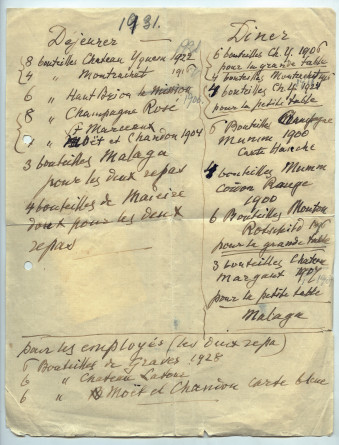 1931.
Dejeuner
8 bouteilles Chateau Yquem 1922
4 " Montrachet
6 " Haut Brion la Mission
8 " Champagne Rosé
Moët et Chandon 1904
3 bouteilles Malaga
pour les deux repas
4 bouteilles de
doux pour les deux
repas
Diner
6 bouteilles Ch. Y. 1906
pour la grande table
4 bouteilles Montrachet
4 bouteilles Ch. Y.
pour la petite table
6 Bouteilles Champagne
Mumm 1900
Carte
4 bouteilles Mumm
Rouge
1900
6 Bouteilles Mouton
Rotschild
pour la grande table
3 bouteilles Chateau
Margaux
pour la petite table
Malaga
pour les employés (les deux repas)
6 Bouteilles de Graves 1928
6 " Chateau Latour
6 " Moët et Chandon carte bleue